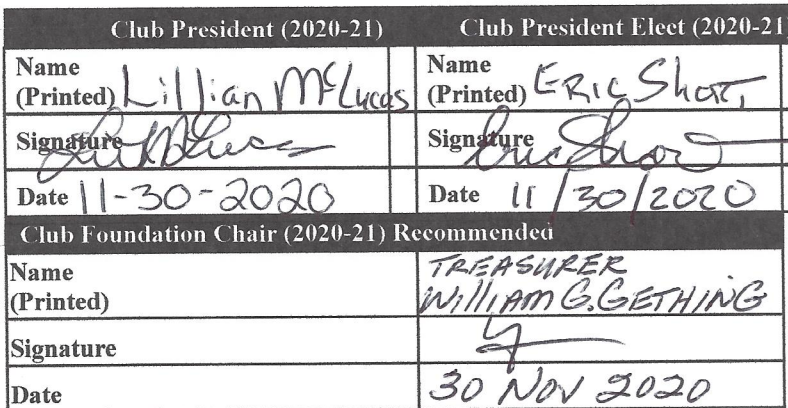 Club President (2020-21) Club President Elect (2020-21
Name Name
(Printed) Lillian McLucas (Printed) ERIC SHOTT
Signature Signature Eric Shott
Date 11-30-2020 Date 11/30/2020
Club Foundation Chair (2020-21) Recommended
Name TREASURER
(Printed) William G. GETHING
Signature
Date 30 NOV 2020